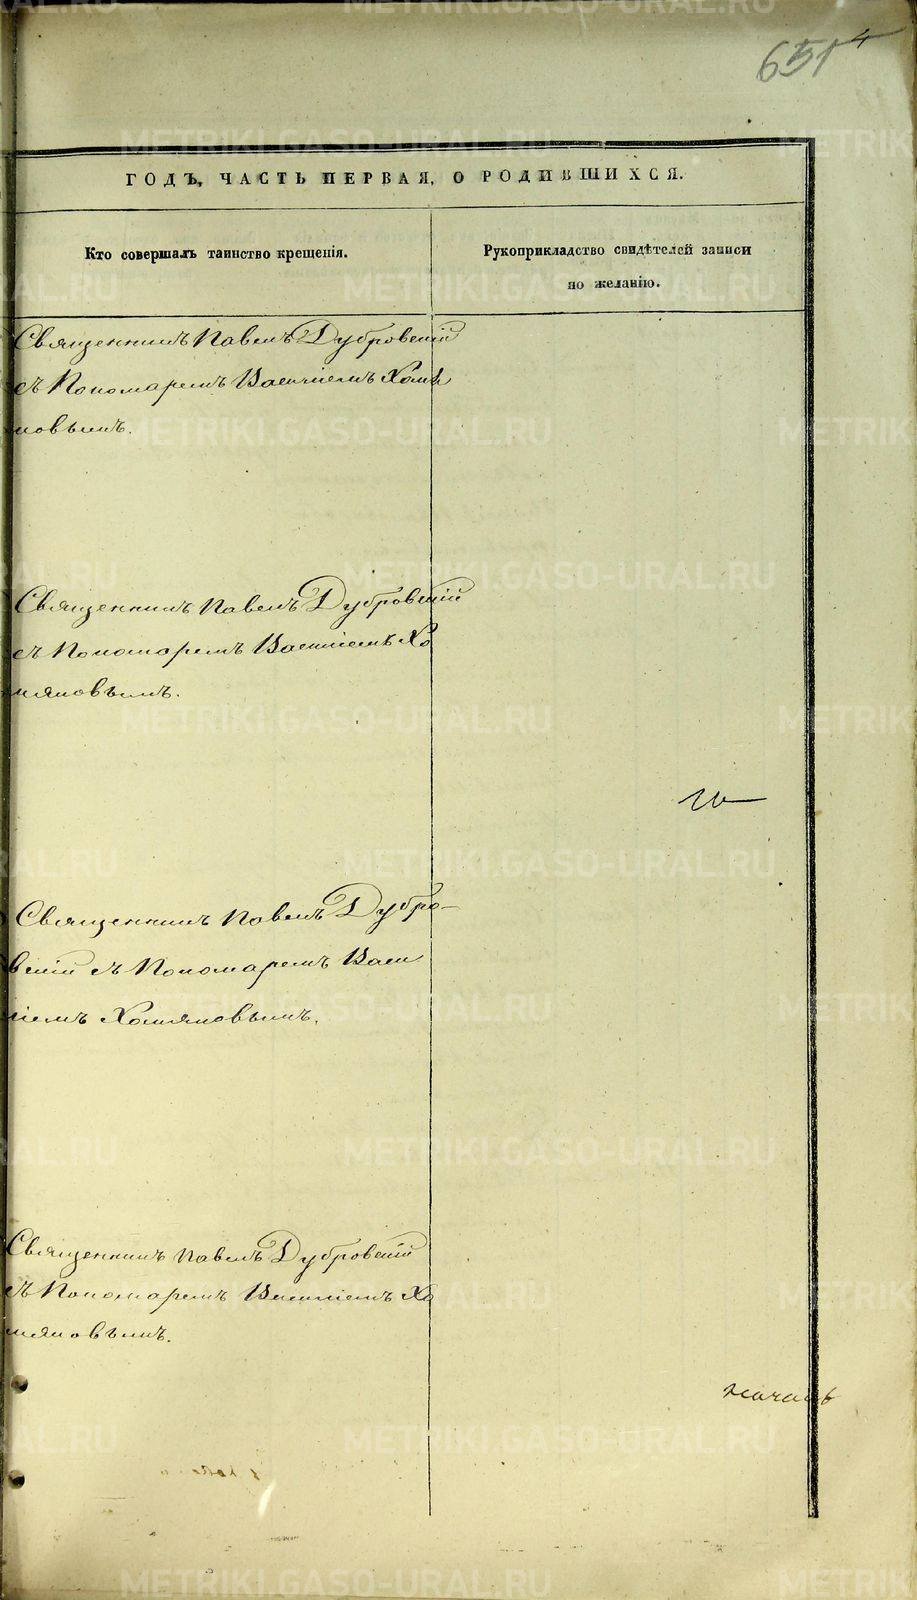 651
4
ГОДЪ, ЧАСТЬ ПЕРВАЯ, О РОДИВШИХСЯ.
Кто совершалъ таинство крещенія.
Рукоприкладство свидѣтелей записи
по желанію.
Священникъ Павелъ Дубровскій
съ Пономаремъ Василіемъ Хомя
ковымъ.
Священникъ Павелъ Дубровскій
съ Пономаремъ Василіемъ Хо
мяковымъ.
Священникъ Павелъ Дубро-
вскій съ Пономаремъ Васи
ліемъ Хомяковымъ.
Священникъ Павелъ Дубровскій
съ Пономаремъ Василіемъ Хо
мяковымъ.
METRIKI.GASO-URAL.RU